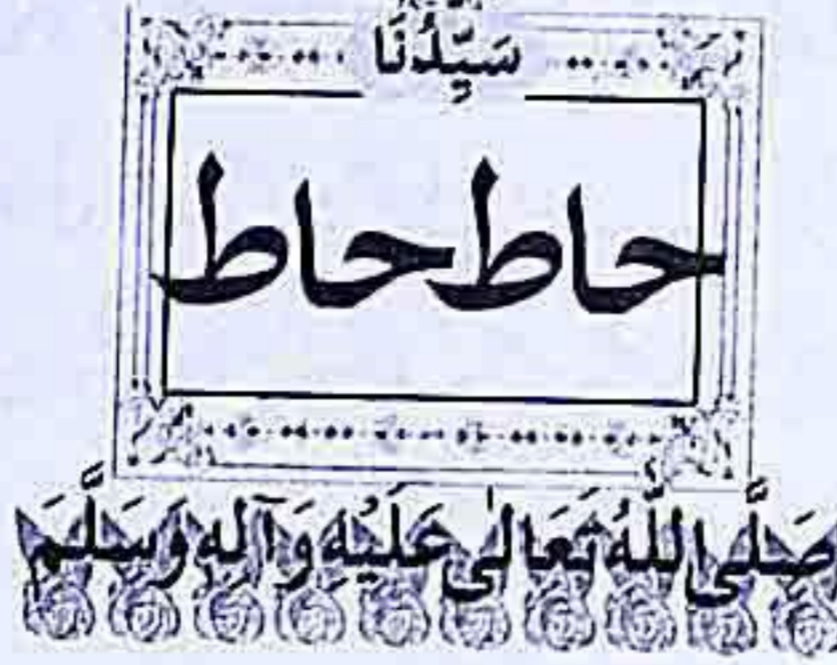 سَيِّدُنَا
حاط حاط
صَلَّى اللّٰهُ تَعَالٰى عَلَيْهِ وَآلِهٖ وَسَلَّمَ